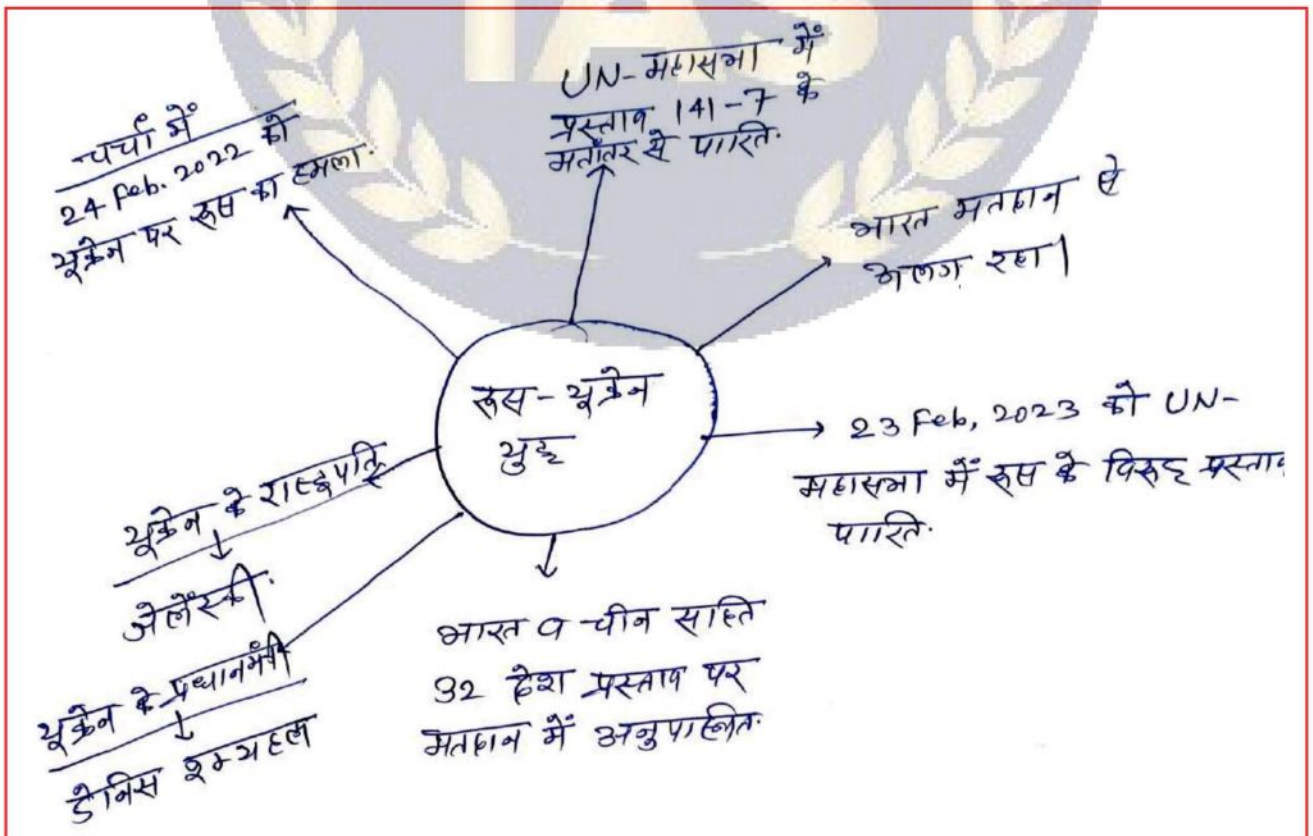 IAS
चर्चा में
24 Feb. 2022 को
यूक्रेन पर रूस का हमला.
UN-महासभा में
प्रस्ताव 141-7 के
मतांतर से पारित.
भारत मतदान से
अलग रहा।
रूस-यूक्रेन
युद्ध
23 Feb, 2023 को UN-
महासभा में रूस के विरूद्ध प्रस्ताव
पारित.
यूक्रेन के राष्ट्रपति
जेलेंस्की.
यूक्रेन के प्रधानमंत्री
डेनिस श्म्यहल
भारत व चीन सहित
32 देश प्रस्ताव पर
मतदान में अनुपस्थित.